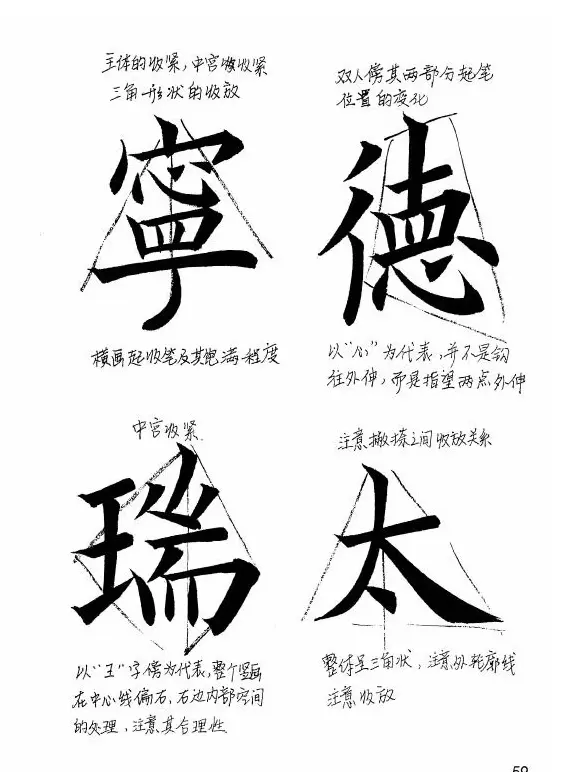 主体的收紧,中宫收收紧
三角形状的收放
寧
横画起收笔及其饱满程度
双人傍其两部分起笔
位置的变化
德
以“心”为代表,并不是钩
往外伸,而是指望两点外伸
中宫收紧
瑞
以“王”字傍为代表,整个竖画
在中心线偏右、右边内部空间
的处理,注意其合理性
注意撇捺之间收放关系
太
整体呈三角状,注意外轮廓线
注意收放
59